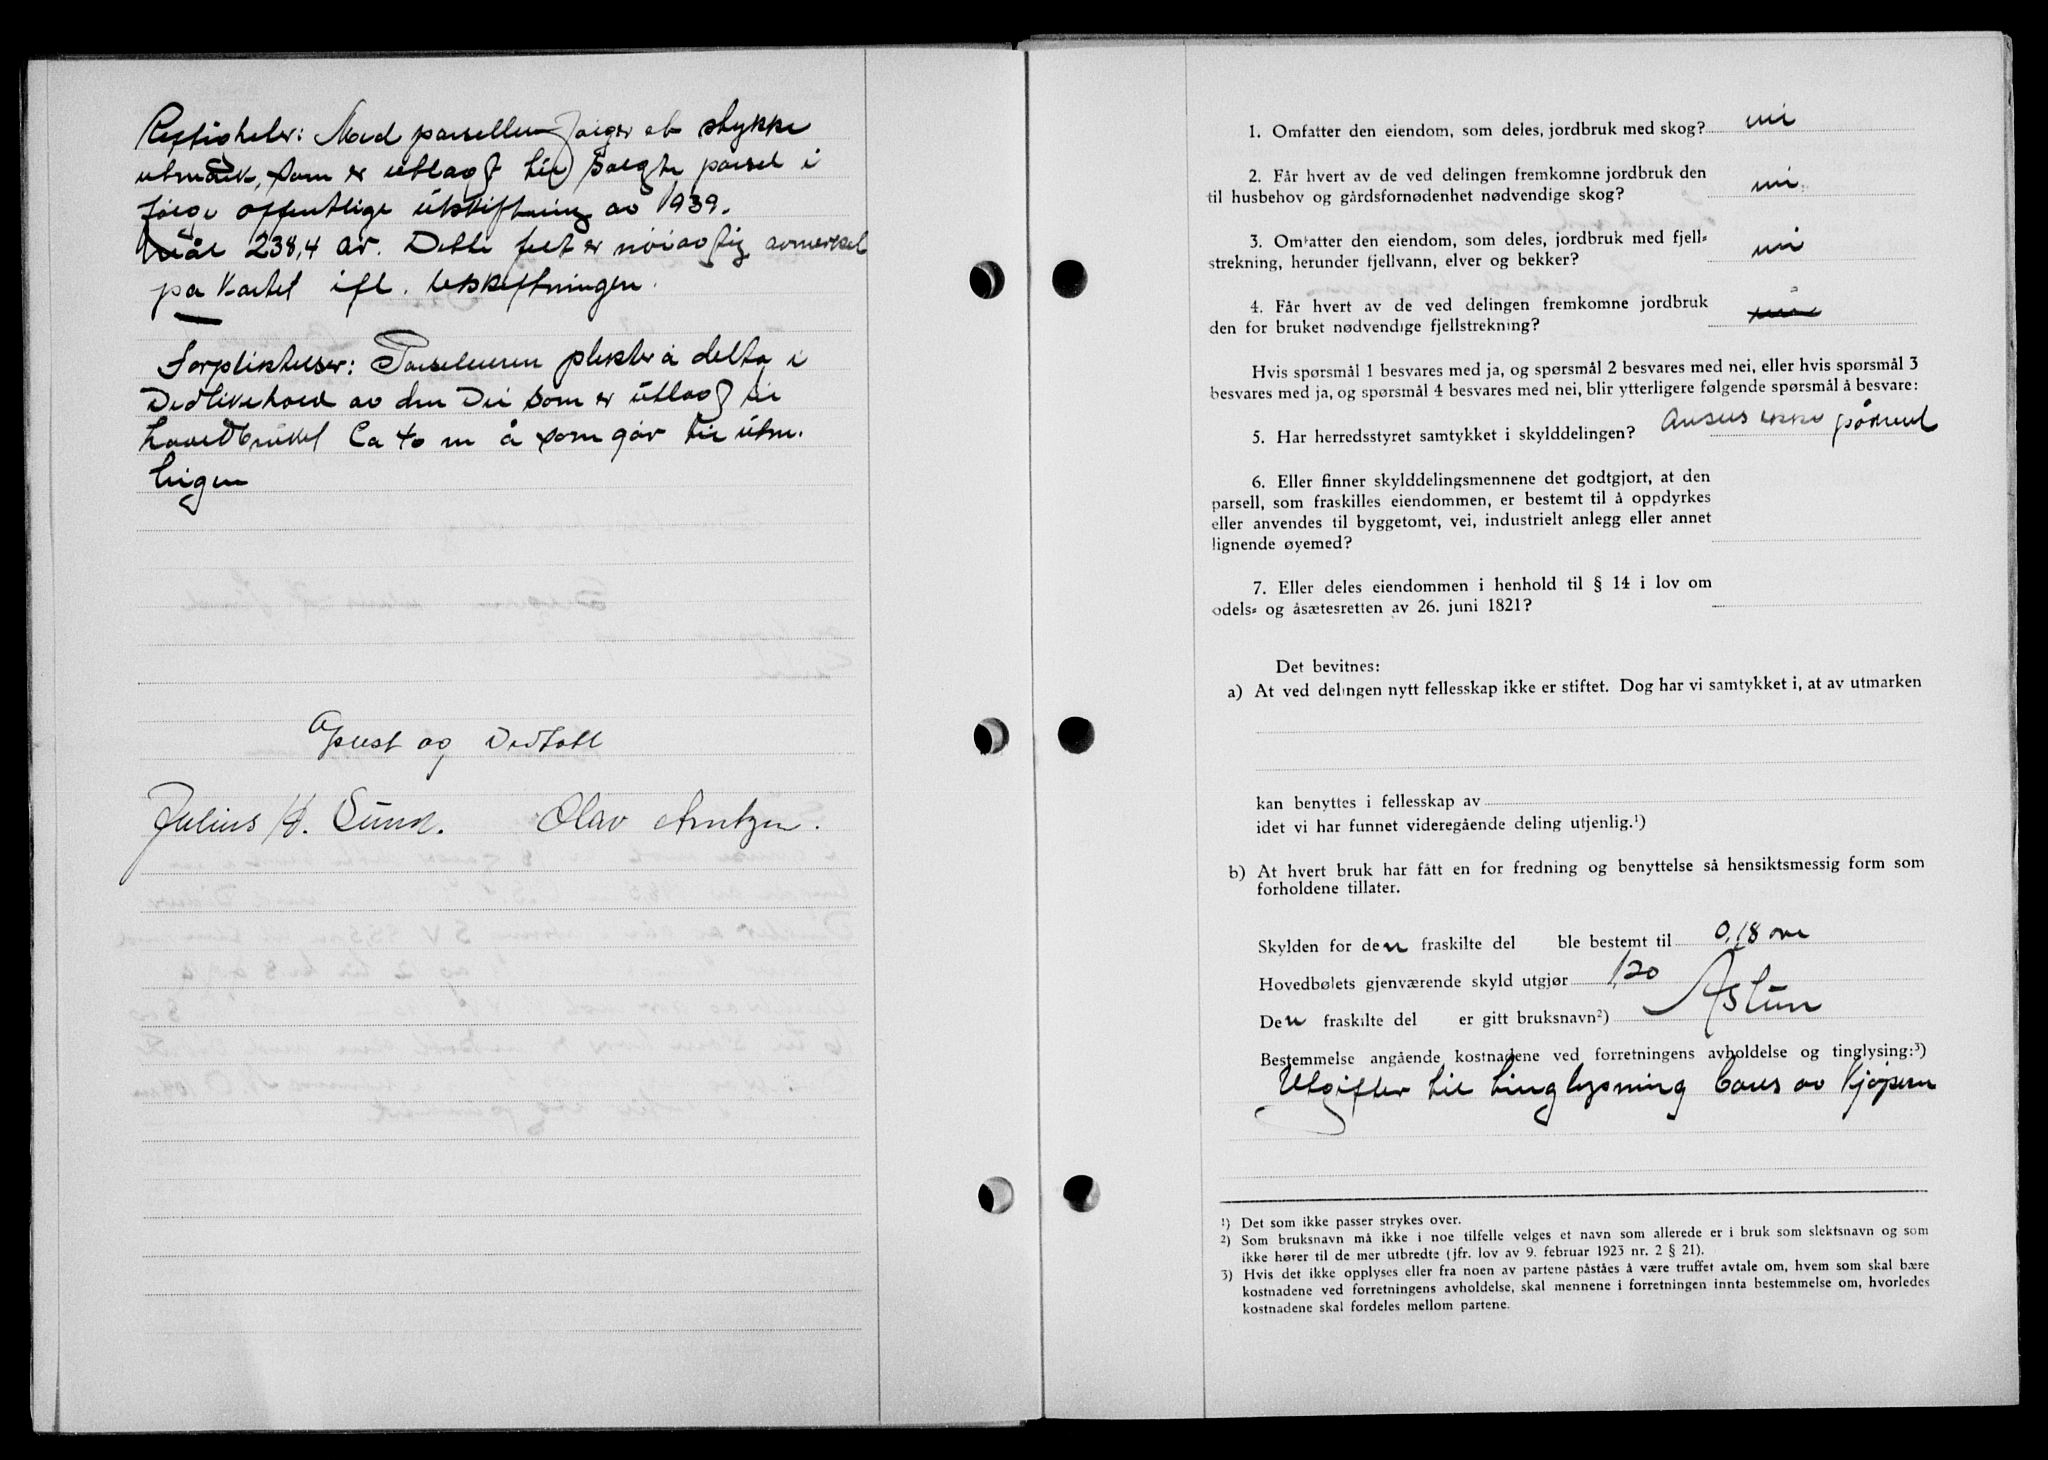 Rettigheter: Med parsellen følger et stykke
utmark, som er utlagt til solgte parsel i
følge offentlige utskiftning av 1939.
238,4 ar. Dette felt er nøiagtig avmerket
på Kartet ifl. utskiftningen.
Forpliktelser: Parseleieren plikter å delta i
Vedlikehold av den Vei som er utlagt til
hovedbruket Ca 40 m å som går til utm.
Opest og Vedtatt
Julius H. Sund. Olav Arntzen.
1. Omfatter den eiendom, som deles, jordbruk med skog? nei
2. Får hvert av de ved delingen fremkomne jordbruk den
til husbehov og gårdsfornødenhet nødvendige skog? nei
3. Omfatter den eiendom, som deles, jordbruk med fjell-
strekning, herunder fjellvann, elver og bekker? nei
4. Får hvert av de ved delingen fremkomne jordbruk
den for bruket nødvendige fjellstrekning?
Hvis spørsmål 1 besvares med ja, og spørsmål 2 besvares med nei, eller hvis spørsmål 3
besvares med ja, og spørsmål 4 besvares med nei, blir ytterligere følgende spørsmål å besvare:
5. Har herredsstyret samtykket i skylddelingen? Anses ikke påkrevd
6. Eller finner skylddelingsmennene det godtgjort, at den
parsell, som fraskilles eiendommen, er bestemt til å oppdyrkes
eller anvendes til byggetomt, vei, industrielt anlegg eller annet
lignende øyemed?
7. Eller deles eiendommen i henhold til § 14 i lov om
odels- og åsætesretten av 26. juni 1821?
Det bevitnes:
a) At ved delingen nytt fellesskap ikke er stiftet. Dog har vi samtykket i, at av utmarken
kan benyttes i fellesskap av
idet vi har funnet videregående deling utjenlig.¹)
b) At hvert bruk har fått en for fredning og benyttelse så hensiktsmessig form som
forholdene tillater.
Skylden for den fraskilte del ble bestemt til 0,18 øre
Hovedbølets gjenværende skyld utgjør 1,20
Den fraskilte del er gitt bruksnavn²) Astun
Bestemmelse angående kostnadene ved forretningens avholdelse og tinglysing:³)
Utgifter til tinglysning bæres av Kjøperen
¹) Det som ikke passer strykes over.
²) Som bruksnavn må ikke i noe tilfelle velges et navn som allerede er i bruk som slektsnavn og som
ikke hører til de mer utbredte (jfr. lov av 9. februar 1923 nr. 2 § 21).
³) Hvis det ikke opplyses eller fra noen av partene påståes å være truffet avtale om, hvem som skal bære
kostnadene ved forretningens avholdelse, skal mennene i forretningen innta bestemmelse om, hvorledes
kostnadene skal fordeles mellom partene.